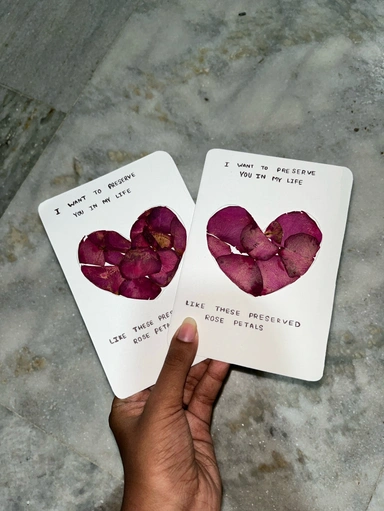 I WANT TO PRESERVE
YOU IN MY LIFE
LIKE THESE PRES
ROSE PETA
I WANT TO PRESERVE
YOU IN MY LIFE
LIKE THESE PRESERVED
ROSE PETALS